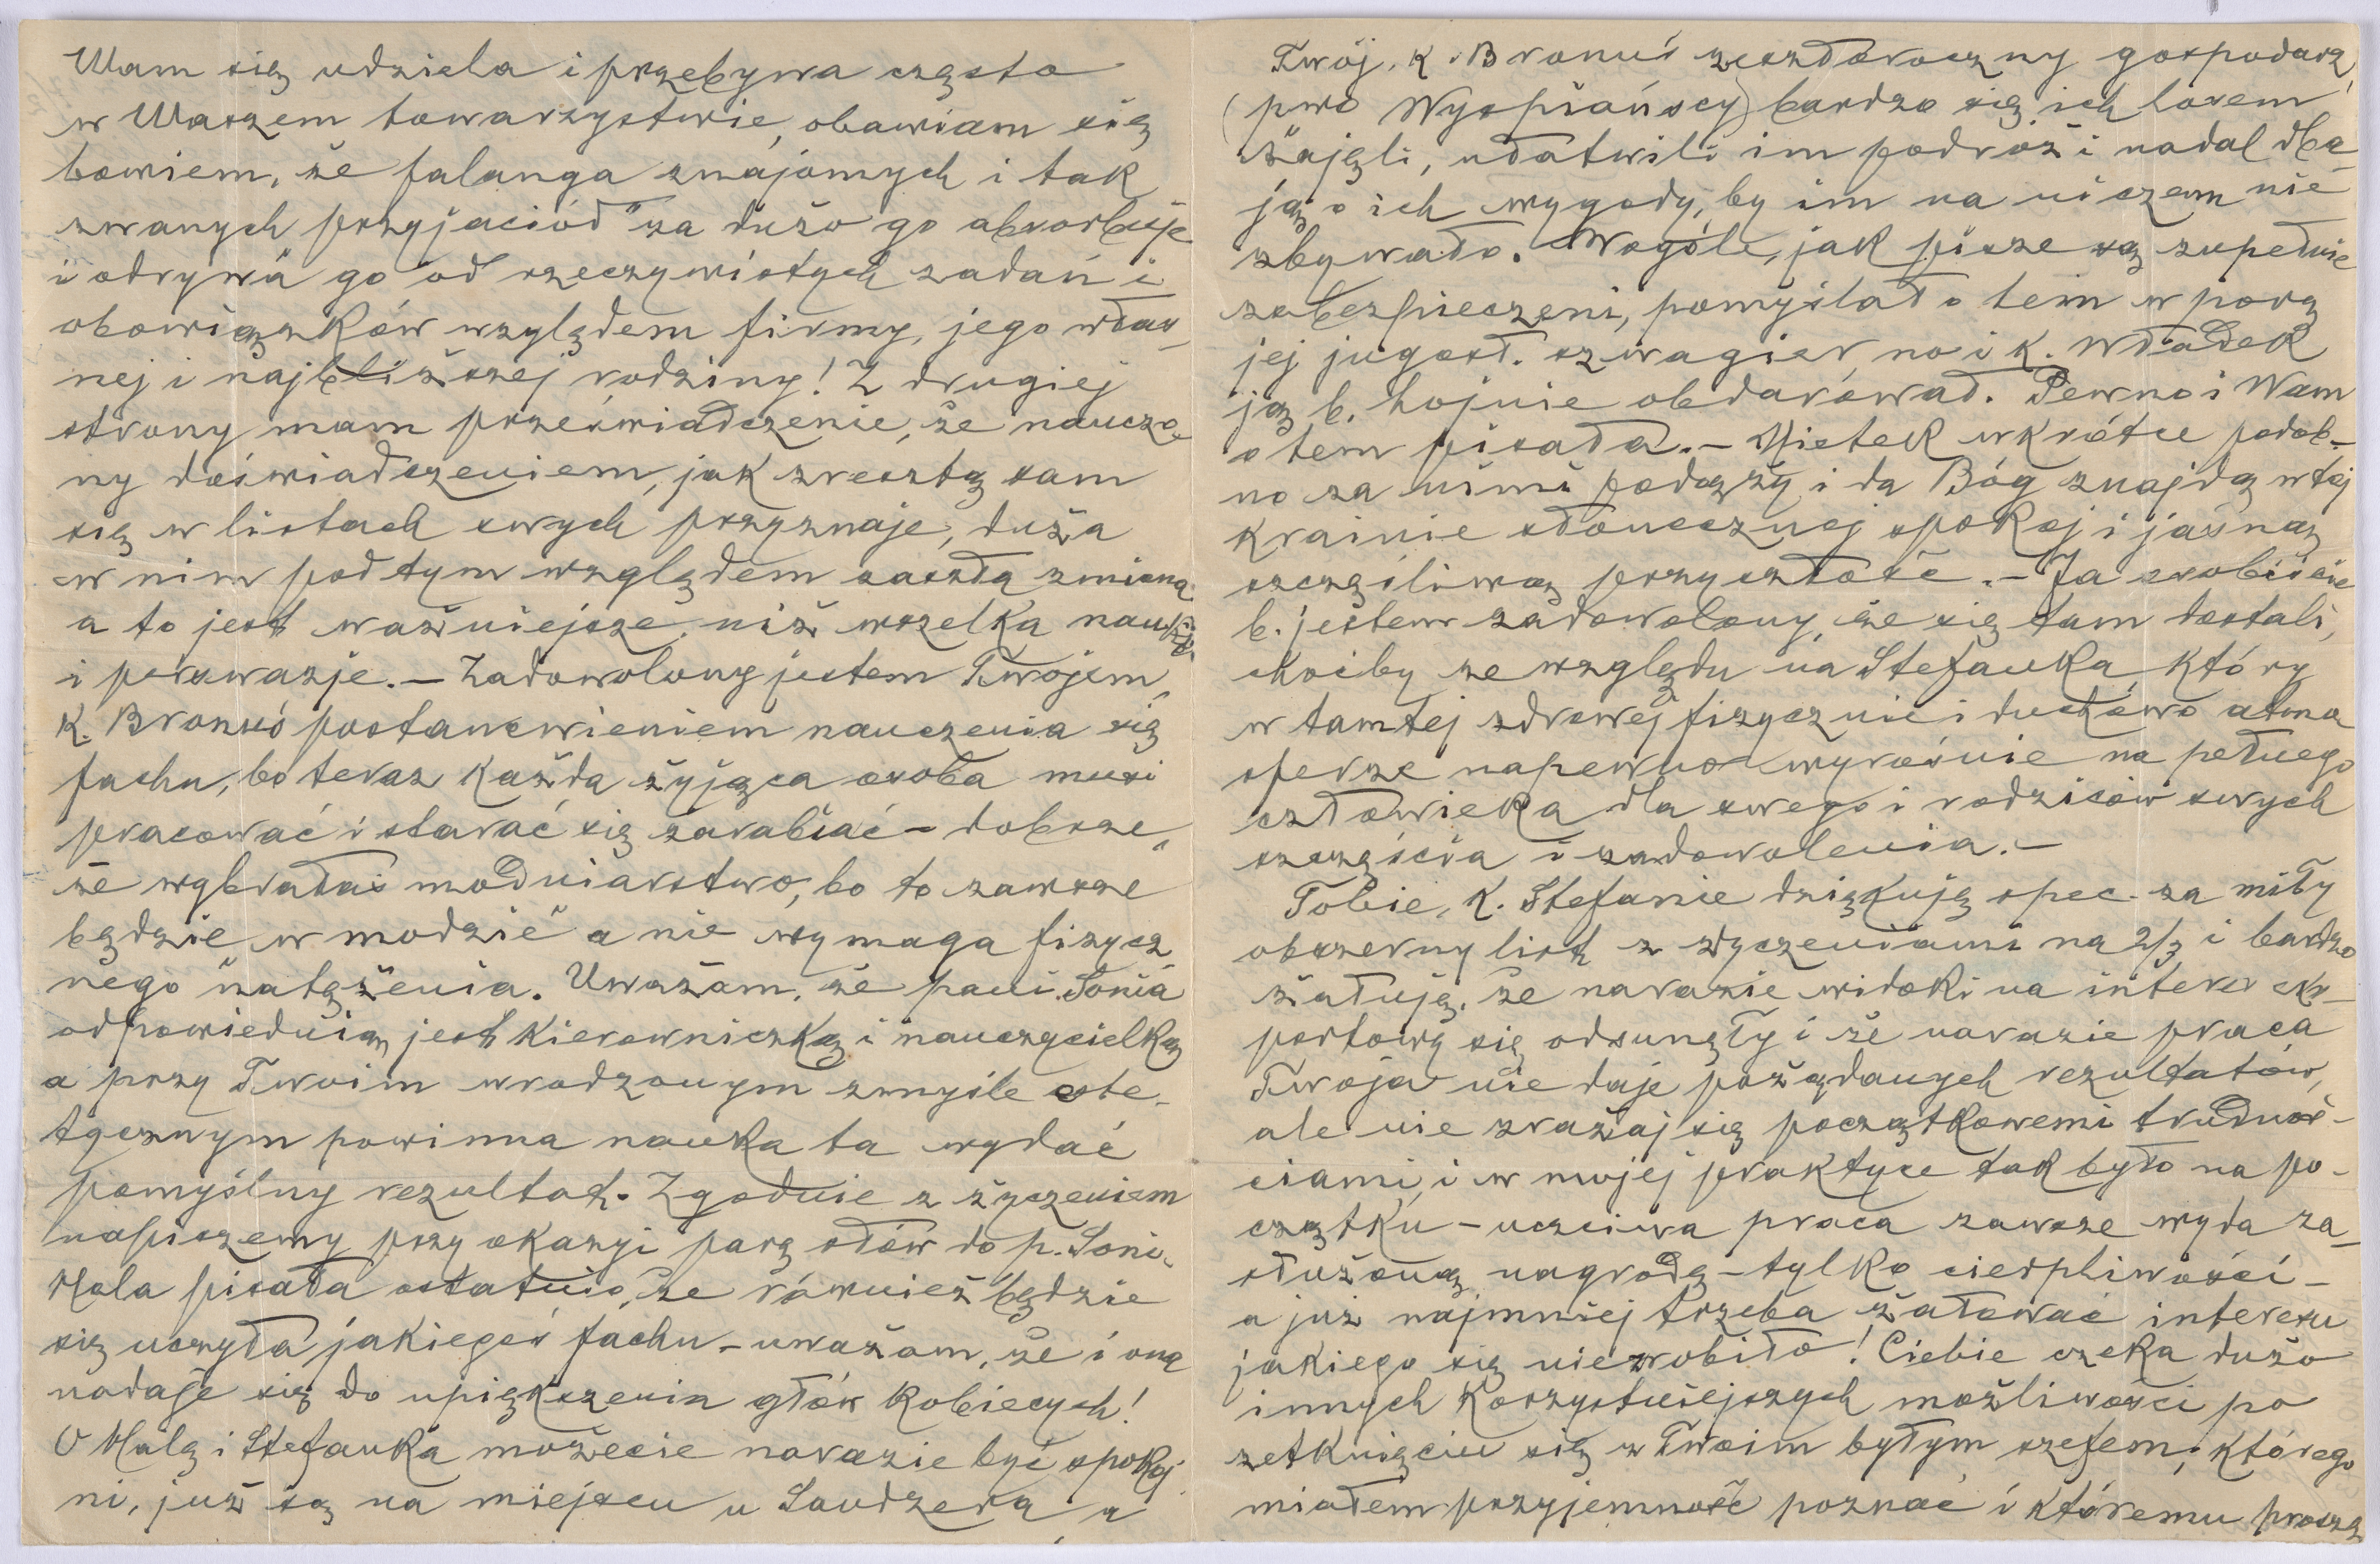 Wam się udziela i przebywa często
w Waszem towarzystwie, obawiam się
bowiem, że falanga znajomych i tak
zwanych przyjaciół" za dużo go absorbuje
i odrywa go od rzeczywistych zadań i
obowiązków względem firmy, jego włas-
nej i najbliższej rodziny! Z drugiej
strony mam przeświadczenie, że nauczo-
ny doświadczeniem, jak zresztą sam
się w listach swych przyznaje, duża
w nim pod tym względem zaszła zmiana
a to jest ważniejsze, niż wszelka nauka
i perswazje. – Zadowolony jestem Twojem,
K. Bronuś postanowieniem nauczenia się
fachu, bo teraz każda żyjąca osoba musi
pracować i starać się zarabiać – dobrze,
że wybrałaś modniarstwo, bo to zawsze
będzie „w modzie" a nie wymaga fizycz-
nego natężenia. Uważam, że pani Sonia
odpowiednią jest kierowniczką i nauczycielką
a przy Twoim wrodzonym zmyśle este-
tycznym powinna nauka ta wydać
pomyślny rezultat. Zgodnie z życzeniem
napiszemy przy okazyi parę słów do p. Soni.
Hala pisała ostatnio, że również będzie
się uczyła jakiegoś fachu – uważam, że i ona
nadaje się do upiększenia głów kobiecych!
O Halę i Stefanka możecie narazie być spokoj-
ni, już są na miejscu u Saudzera, a
Twój, K. Bronuś zeszłoroczny gospodarz
(pwo Wyspiańscy) bardzo się ich losem
zajęli, ułatwili im podróż i nadal dba-
ją o ich wygody, by im na niczem nie
zbywało. Wogóle, jak pisze są zupełnie
zabezpieczeni, pomyślał o tem w porę
jej jugosł. szwagier, no i K. Władek
ją b. hojnie obdarował. Pewno i Wam
o tem pisała. – Mietek wkrótce podob-
no za nimi podąży i da Bóg znajdą w tej
krainie słonecznej spokój i jasną
szczęśliwą przyszłość. – Ja osobiście
b. jestem zadowolony, że się tam dostali,
choćby ze względu na Stefanka, który
w tamtej zdrowej fizycznie i duchowo atmo
sferze napewno wyrośnie na pełnego
człowieka dla swego i rodziców swych
szczęścia i zadowolenia. –
Tobie, K. Stefanie dziękuję spec. za miły
obszerny list z życzeniami na 2/3 i bardzo
żałuję, że narazie widoki na interes eks-
portowy się odsunęły i że narazie praca
Twoja nie daje pożądanych rezultatów,
ale nie zrażaj się początkowemi trudnoś-
ciami, i w mojej praktyce tak było na po-
czątku – uczciwa praca zawsze wyda za-
służoną nagrodę – tylko cierpliwości –
a już najmniej trzeba żałować interesu
jakiego się nie zrobiło! Ciebie czeka dużo
innych korzystniejszych możliwości po
zetknięciu się z Twoim byłym szefem, którego
miałem przyjemność poznać i któremu proszę